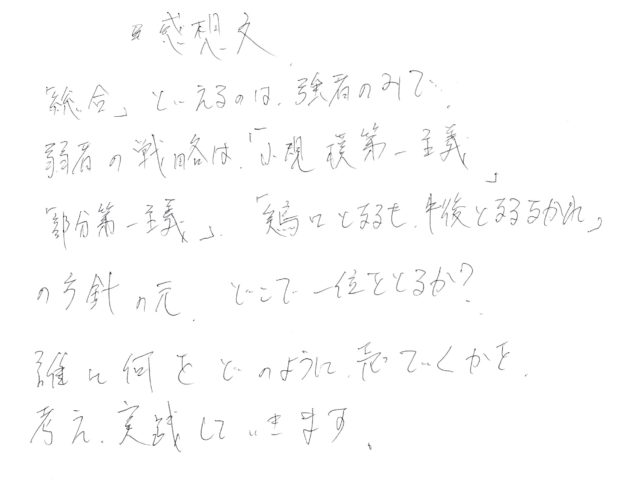 感想文
「総合」といえるのは、強者のみで、
弱者の戦略は、「小規模第一主義」
「部分第一主義」、「鶏口となるも、牛後となるなかれ」
の方針の元、どこで一位をとるか?
誰に何をどのように売っていくかを、
考え、実践していきます。